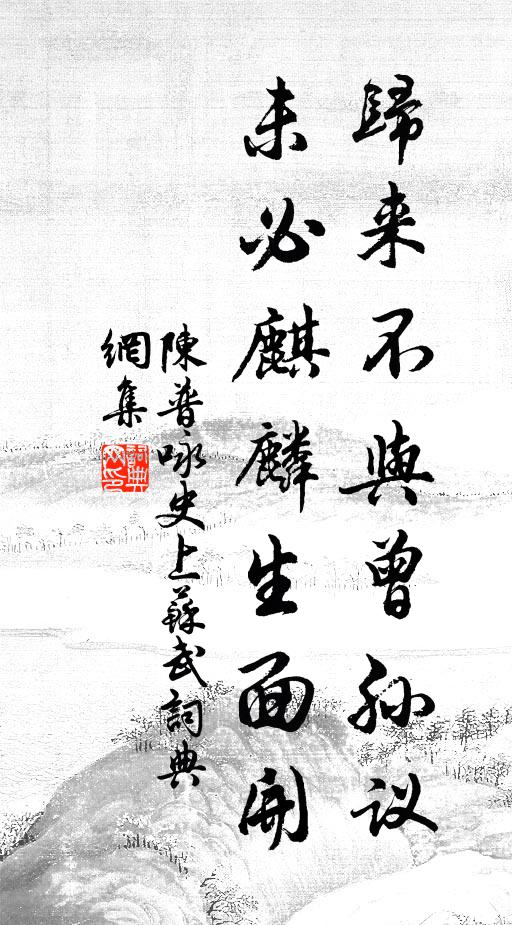 歸来不與曾孫议
未必麒麟生面開
陳普咏史上蘇武詞典
網集
詞典网印